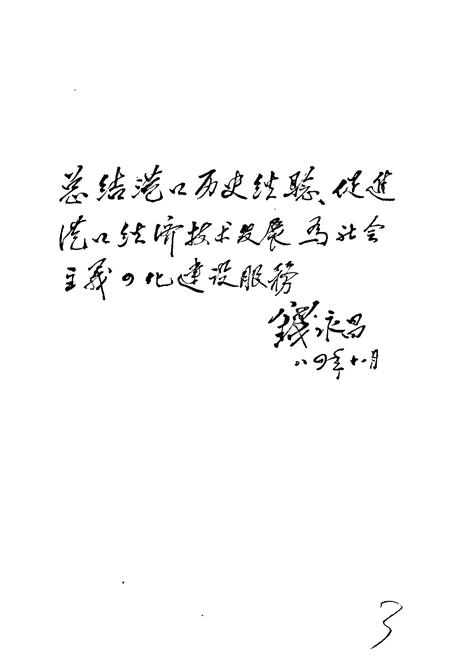 总结港口历史经验、促進
港口经济技术发展为社会
主义四化建设服務
錢永昌
八四年十八月
3